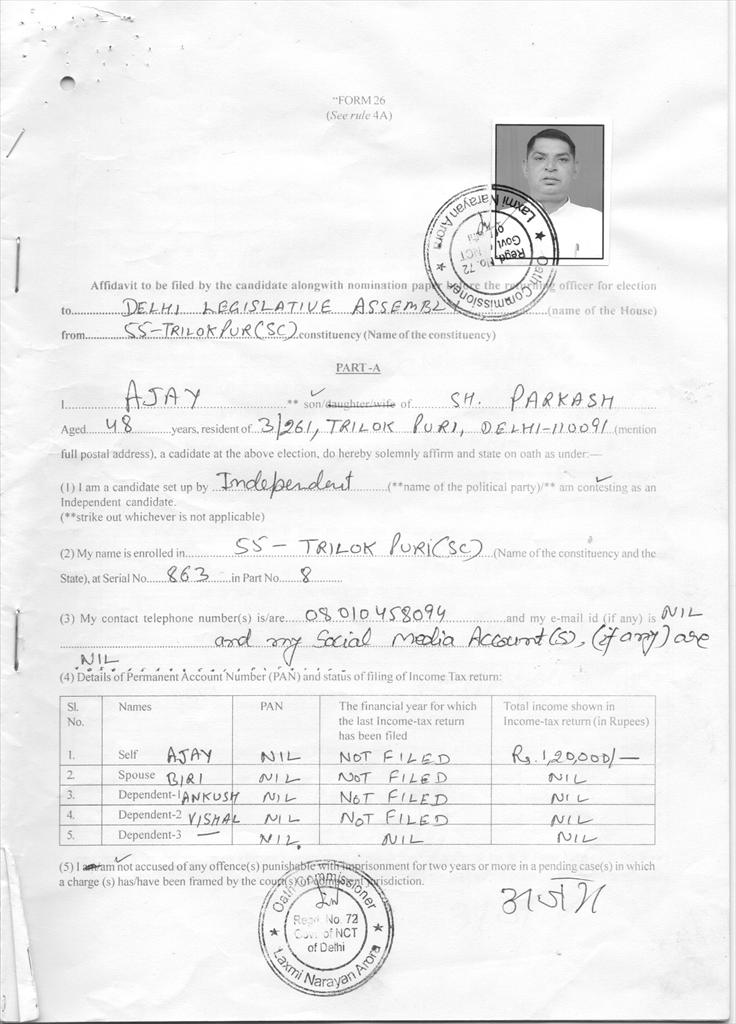 "FORM 26
(See rule 4A)
Laxmi Narayan Arora
Oath Commissioner
Regd. No. 72
Govt. of NCT
Affidavit to be filed by the candidate alongwith nomination paper before the returning officer for election
to DELHI LEGISLATIVE ASSEMBLY (name of the House)
from 55-TRILOKPUR(SC) constituency (Name of the constituency)
PART-A
I AJAY ** son/daughter/wife of SH. PARKASH
Aged 48 years, resident of 3/261, TRILOK PURI, DELHI-110091 (mention
full postal address), a cadidate at the above election, do hereby solemnly affirm and state on oath as under:—
(1) I am a candidate set up by Independent (**name of the political party)/** am contesting as an
Independent candidate.
(**strike out whichever is not applicable)
(2) My name is enrolled in 55 - TRILOK PURI(SC) (Name of the constituency and the
State), at Serial No. 863 in Part No. 8
(3) My contact telephone number(s) is/are 08010458094 and my e-mail id (if any) is NIL
and my Social Media Account(s), (if any) are
NIL
(4) Details of Permanent Account Number (PAN) and status of filing of Income Tax return:
Sl. No. Names PAN The financial year for which the last Income-tax return has been filed Total income shown in Income-tax return (in Rupees)
1. Self AJAY NIL NOT FILED Rs. 1,20,000/-
2. Spouse BIRI NIL NOT FILED NIL
3. Dependent-1 ANKUSH NIL NOT FILED NIL
4. Dependent-2 VISHAL NIL NOT FILED NIL
5. Dependent-3 — NIL. NIL NIL
(5) I am/am not accused of any offence(s) punishable with imprisonment for two years or more in a pending case(s) in which
a charge (s) has/have been framed by the court(s) of competent jurisdiction.
अजय
Oath Commissioner
Regd. No. 72
Govt. of NCT
of Delhi
Laxmi Narayan Arora